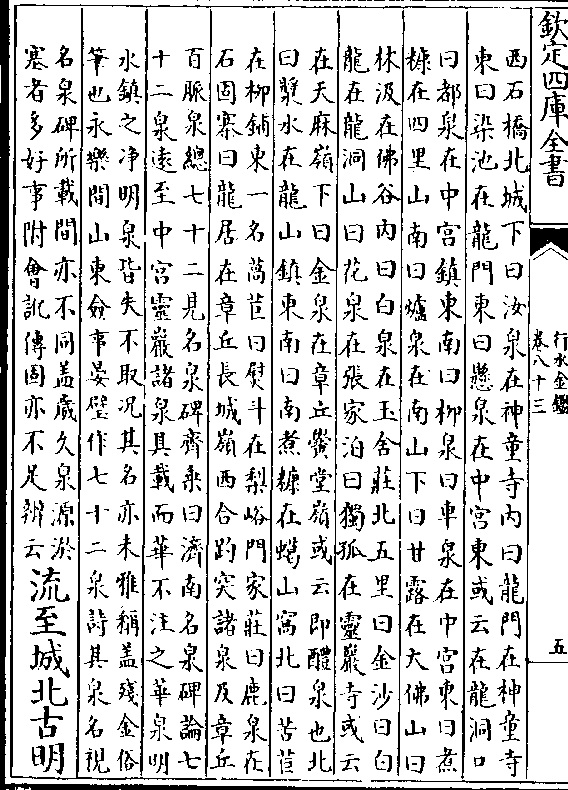 欽定四庫全書
行水金鑑
卷八十三
五
西石橋北城下曰汝泉在神童寺内曰龍門在神童寺
東曰染池在龍門東曰懸泉在中宫東或云在龍洞口
曰都泉在中宫鎮東南曰柳泉曰車泉在中宫東曰煮
糠在四里山南曰爐泉在南山下曰甘露在大佛山曰
林汲在佛谷内曰白泉在玉舍莊北五里曰金沙曰白
龍在龍洞山曰花泉在張家泊曰獨孤在靈巖寺或云
在天麻嶺下曰金泉在章丘黌堂嶺或云即醴泉也北
曰漿水在龍山鎮東南曰南煮糠在蝎山窩北曰苦苣
在柳鋪東一名萵苣曰熨斗在梨峪門家莊曰鹿泉在
石固寨曰龍居在章丘長城嶺西合趵突諸泉及章丘
百脈泉總七十二見名泉碑齊乘曰濟南名泉碑論七
十二泉遠至中宫靈巖諸泉具載而華不注之華泉明
水鎮之净明泉皆失不取况其名亦未雅稱盖殘金俗
筆也永樂間山東僉事晏璧作七十二泉詩其泉名視
名泉碑所載間亦不同盖歲久泉源淤
塞者多好事附會訛傳固亦不足辨云流至城北古明